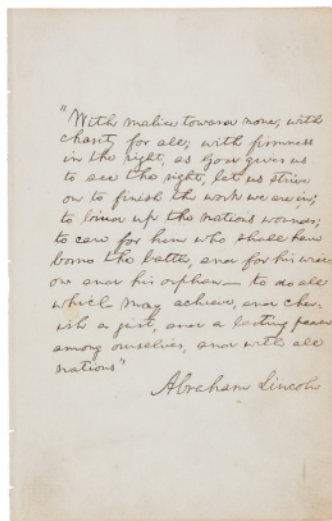 "With malice toward none, with
charity for all; with firmness
in the right, as God gives us
to see the right, let us strive
on to finish the work we are in;
to bind up the nations wounds;
to care for him who shall have
borne the battle, and for his wid-
ow and his orphan— to do all
which may achieve, and cher-
ish a just, and a lasting peace
among ourselves, and with all
nations"
Abraham Lincoln